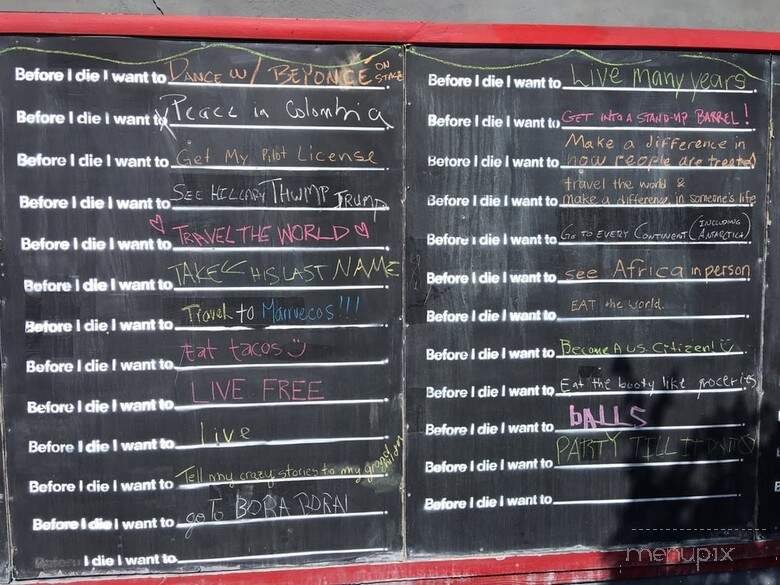 Before I die I want to DANCE W/ BEYONCÉ ON STAGE
Before I die I want to Peace in Colombia
Before I die I want to Get My Pilot License
Before I die I want to SEE HILLARY THWMP TRUMP
Before I die I want to TRAVEL THE WORLD
Before I die I want to TAKE HIS LAST NAME
Before I die I want to Travel to Marruecos!!!
Before I die I want to Eat tacos
Before I die I want to LIVE FREE
Before I die I want to Live
Before I die I want to Tell my crazy stories to my grand children
Before I die I want to go to BORA BORA!
Before I die I want to
Before I die I want to Live many years
Before I die I want to GET INTO A STAND-UP BARREL!
Before I die I want to Make a difference in
how people are treated
Before I die I want to travel the world &
make a difference in someone's life
Before I die I want to GO TO EVERY CONTINENT (INCLUDING ANTARCTICA)
Before I die I want to see Africa in person
Before I die I want to EAT the world.
Before I die I want to Become A U.S. Citizen!
Before I die I want to Eat the booty like groceries
Before I die I want to bALLS
Before I die I want to PARTY TILL IT
Before I die I want to
menupix